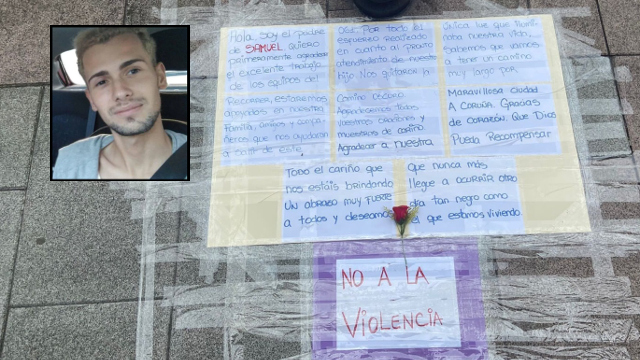 Hola, soy el padre
de SAMUEL quiero
primeramente agradecer
el excelente trabajo
de los equipos del
061. Por todo el
esfuerzo realizado
en cuanto al pronto
atendimiento de nuestro
hijo. Nos quitaron la
única luz que ilumi
naba nuestra vida...
sabemos que vamos
a tener un camino
muy largo por
Recorrer, estaremos
apoyados en nuestra
Familia, amigos y compa
ñeros que nos ayudaran
a salir de este
camino oscuro
todas
vuestras oraciones y
muestras de cariño.
Agradecer a nuestra
MARAVILLOSA CIUDAD
A CORUÑA. GRACIAS
DE CORAZÓN. QUE DIOS
PUEDA RECOMPENSAR
TODO EL CARIÑO QUE
NOS ESTÁIS BRINDANDO
UN ABRAZO MUY FUERTE
a todos y deseamos
Que nunca más
llegue a ocurrir otro
día tan negro como
el que estamos viviendo.
NO A LA
VIOLENCIA